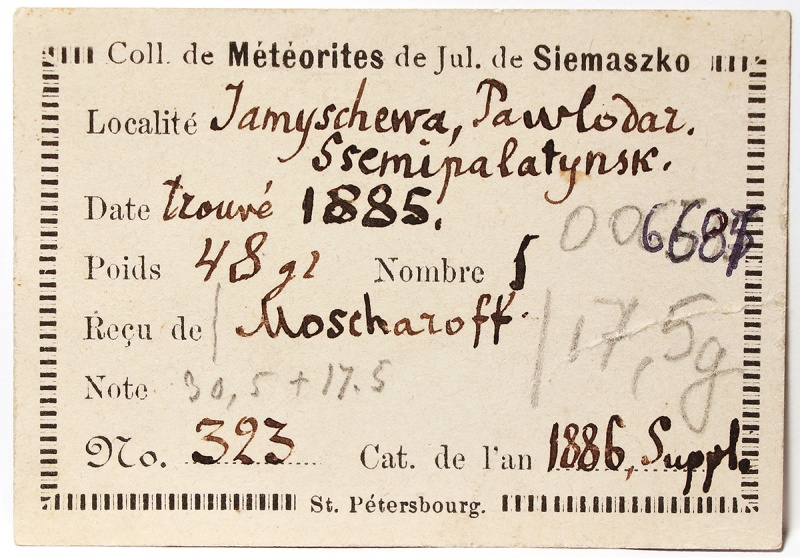 Coll. de Météorites de Jul. de Siemaszko
Localité Jamyschewa, Pawlodar.
Ssemipalatynsk.
Date trouvé 1885.
Poids 48 gr Nombre 1
Reçu de Moscharoff
17,5g
Note 30,5 + 17.5
No. 323 Cat. de l'an 1886, Suppl.
St. Pétersbourg.